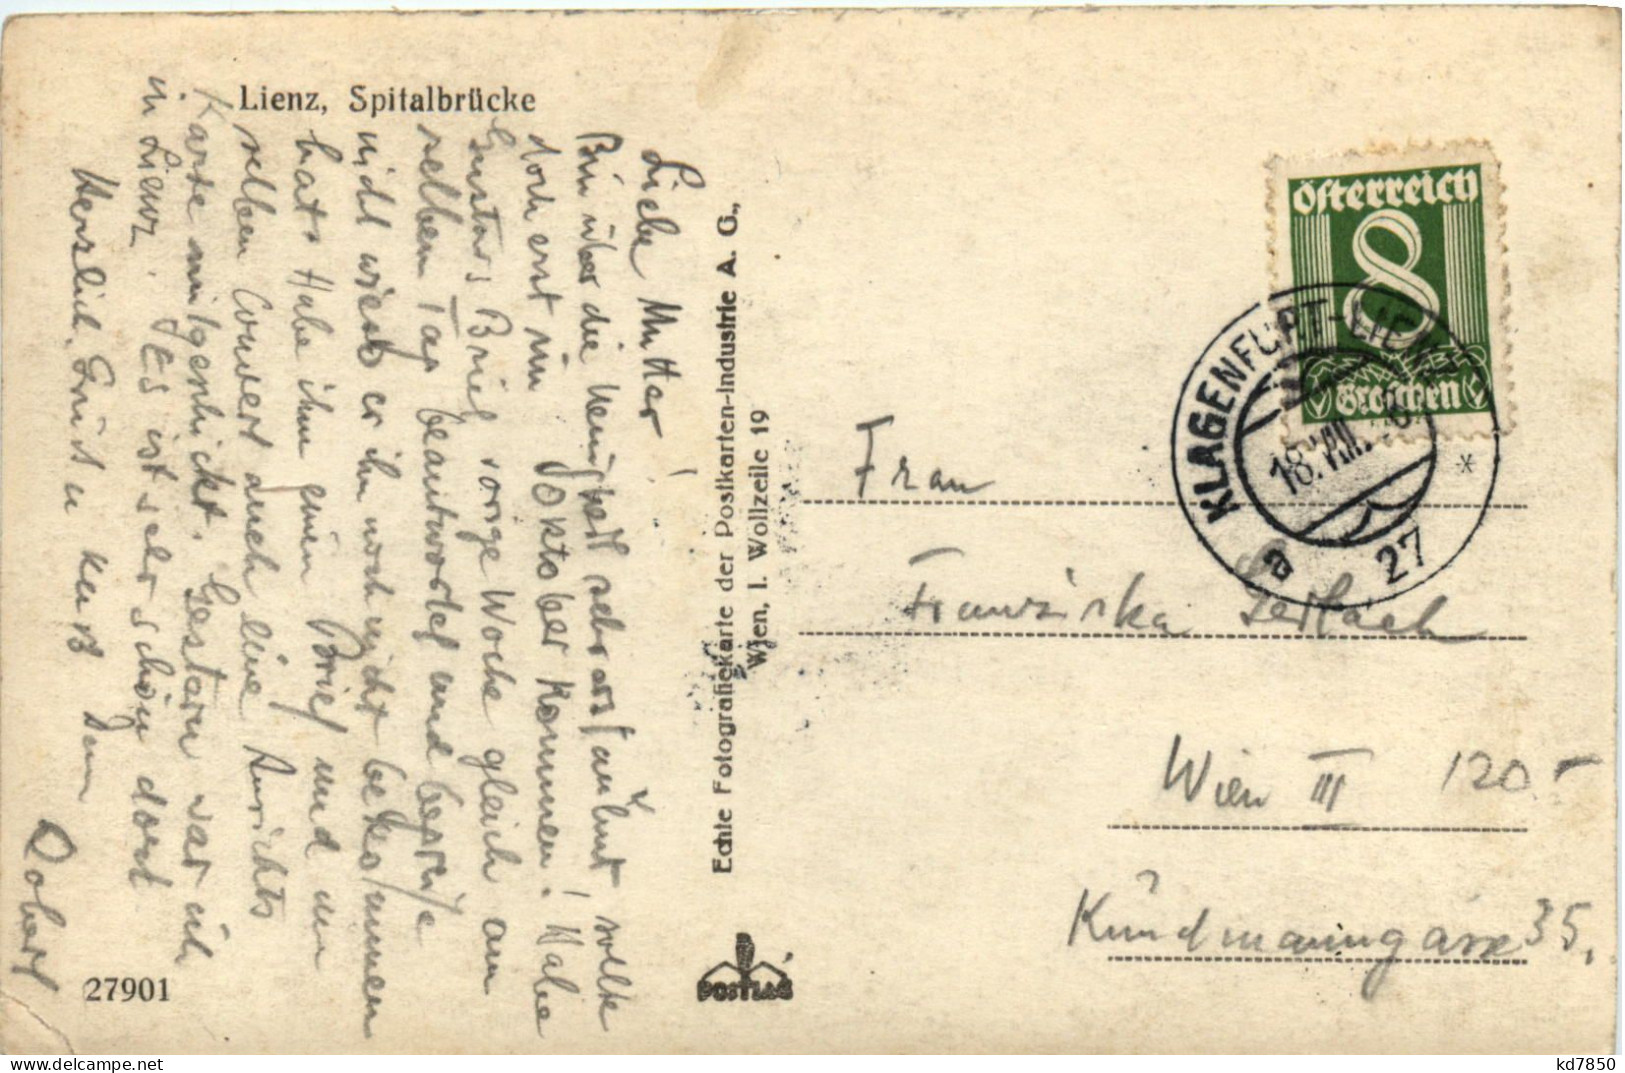 Lienz, Spitalbrücke
Liebe Mutter!
Bin über die Neuigkeit sehr erstaunt, sollte
doch erst im Oktober kommen! Habe
Gustavs Brief vorige Woche gleich am
selben Tag beantwortet und begreife
nicht wieso er ihn noch nicht bekommen
hat. Habe ihm einen Brief und im
selben Couvert auch eine Ansichts
Karte mitgeschickt. Gestern war ich
in Lienz. Es ist sehr schön dort
Herzlich. Gruß u Kuß Dein
Robert
27901
Echte Fotografiekarte der Postkarten-Industrie A. G.,
Wien, I. Wollzeile 19
POSTIAG
Österreich
8
Groschen
KLAGENFURT-LIENZ
18.VIII. 26
* 27 e
Frau
Franziska Gerlach
Wien III 120-
Kündmanngasse 35.
kd7850